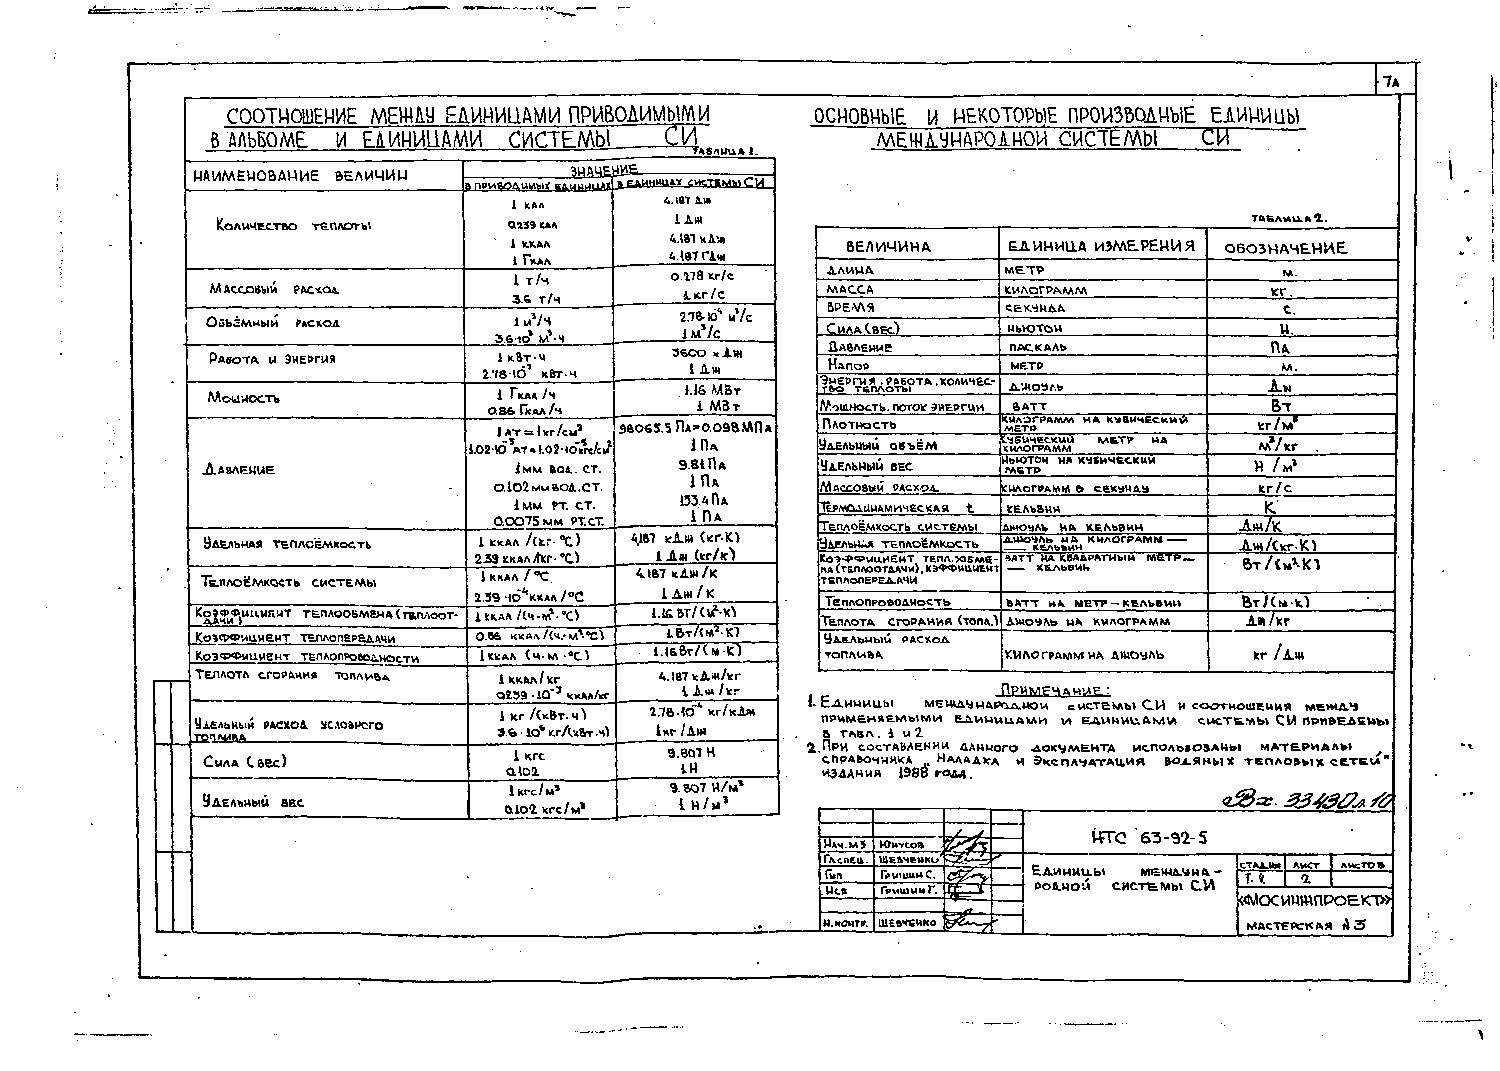 7А
СООТНОШЕНИЕ МЕЖДУ ЕДИНИЦАМИ ПРИВОДИМЫМИ
В АЛЬБОМЕ И ЕДИНИЦАМИ СИСТЕМЫ СИ
ТАБЛИЦА 1.
НАИМЕНОВАНИЕ ВЕЛИЧИН
ЗНАЧЕНИЕ
В ПРИВОДИМЫХ ЕДИНИЦАХ В ЕДИНИЦАХ СИСТЕМЫ СИ
КОЛИЧЕСТВО ТЕПЛОТЫ
1 КАЛ 4.187 ДЖ
0.239 КАЛ 1 ДЖ
1 ККАЛ 4.187 кДЖ
1 ГКАЛ 4.187 ГДЖ
МАССОВЫЙ РАСХОД
1 Т/Ч 0.278 КГ/С
3.6 Т/Ч 1 КГ/С
ОБЪЁМНЫЙ РАСХОД
1 М³/Ч 2.78·10⁻⁴ М³/С
3.6·10³ М³·Ч 1 М³/С
РАБОТА И ЭНЕРГИЯ
1 КВТ·Ч 3600 кДЖ
2.78·10⁻⁷ КВТ·Ч 1 ДЖ
МОЩНОСТЬ
1 ГКАЛ/Ч 1.16 МВТ
0.86 ГКАЛ/Ч 1 МВТ
ДАВЛЕНИЕ
1 АТ=1КГ/СМ² 98065.5 ПА=0.098 МПА
1.02·10⁻⁵ АТ=1.02·10⁻⁵КГС/СМ² 1 ПА
1 ММ ВОД. СТ. 9.81 ПА
0.102 ММ ВОД.СТ. 1 ПА
1 ММ РТ. СТ. 133.4 ПА
0.0075 ММ РТ.СТ. 1 ПА
УДЕЛЬНАЯ ТЕПЛОЁМКОСТЬ
1 ККАЛ/(КГ·°С) 4,187 кДЖ (КГ·К)
2.39 ККАЛ/(КГ·°С) 1 ДЖ (КГ/К)
ТЕПЛОЁМКОСТЬ СИСТЕМЫ
1 ККАЛ/°С 4.187 кДЖ/К
2.39·10⁻⁴ ККАЛ/°С 1 ДЖ/К
КОЭФФИЦИЕНТ ТЕПЛООБМЕНА (ТЕПЛООТ-
ДАЧИ) 1 ККАЛ/(Ч·М²·°С) 1.16 ВТ/(М²·К)
КОЭФФИЦИЕНТ ТЕПЛОПЕРЕДАЧИ 0.86 ККАЛ/(Ч·М²·°С) 1 ВТ/(М²·К)
КОЭФФИЦИЕНТ ТЕПЛОПРОВОДНОСТИ 1 ККАЛ (Ч·М·°С) 1.16 ВТ/(М·К)
ТЕПЛОТА СГОРАНИЯ ТОПЛИВА
1 ККАЛ/КГ 4.187 кДЖ/КГ
0.239·10⁻³ ККАЛ/КГ 1 ДЖ/КГ
УДЕЛЬНЫЙ РАСХОД УСЛОВНОГО
ТОПЛИВА
1 КГ/(КВТ·Ч) 2.78·10⁻⁴ КГ/кДЖ
3.6·10⁶ КГ/(КВТ·Ч) 1 КГ/ДЖ
СИЛА (ВЕС)
1 КГС 9.807 Н
0.102 1 Н
УДЕЛЬНЫЙ ВЕС
1 КГС/М³ 9.807 Н/М³
0.102 КГС/М³ 1 Н/М³
ОСНОВНЫЕ И НЕКОТОРЫЕ ПРОИЗВОДНЫЕ ЕДИНИЦЫ
МЕЖДУНАРОДНОЙ СИСТЕМЫ СИ
ТАБЛИЦА 2.
ВЕЛИЧИНА ЕДИНИЦА ИЗМЕРЕНИЯ ОБОЗНАЧЕНИЕ
ДЛИНА МЕТР М.
МАССА КИЛОГРАММ КГ.
ВРЕМЯ СЕКУНДА С.
СИЛА (ВЕС) НЬЮТОН Н.
ДАВЛЕНИЕ ПАСКАЛЬ ПА
НАПОР МЕТР М.
ЭНЕРГИЯ, РАБОТА, КОЛИЧЕС-
ТВО ТЕПЛОТЫ ДЖОУЛЬ ДЖ
МОЩНОСТЬ, ПОТОК ЭНЕРГИИ ВАТТ ВТ
ПЛОТНОСТЬ КИЛОГРАММ НА КУБИЧЕСКИЙ МЕТР КГ/М³
УДЕЛЬНЫЙ ОБЪЁМ КУБИЧЕСКИЙ МЕТР НА КИЛОГРАММ М³/КГ
УДЕЛЬНЫЙ ВЕС НЬЮТОН НА КУБИЧЕСКИЙ МЕТР Н/М³
МАССОВЫЙ РАСХОД КИЛОГРАММ В СЕКУНДУ КГ/С
ТЕРМОДИНАМИЧЕСКАЯ t КЕЛЬВИН К
ТЕПЛОЁМКОСТЬ СИСТЕМЫ ДЖОУЛЬ НА КЕЛЬВИН ДЖ/К
УДЕЛЬНАЯ ТЕПЛОЁМКОСТЬ ДЖОУЛЬ НА КИЛОГРАММ — КЕЛЬВИН ДЖ/(КГ·К)
КОЭФФИЦИЕНТ ТЕПЛООБМЕ-
НА (ТЕПЛООТДАЧИ), КЭФФИЦИЕНТ
ТЕПЛОПЕРЕДАЧИ ВАТТ НА КВАДРАТНЫЙ МЕТР — КЕЛЬВИН ВТ/(М²·К)
ТЕПЛОПРОВОДНОСТЬ ВАТТ НА МЕТР-КЕЛЬВИН ВТ/(М·К)
ТЕПЛОТА СГОРАНИЯ (ТОПЛ.) ДЖОУЛЬ НА КИЛОГРАММ ДЖ/КГ
УДЕЛЬНЫЙ РАСХОД
ТОПЛИВА КИЛОГРАММ НА ДЖОУЛЬ КГ/ДЖ
ПРИМЕЧАНИЕ:
1. ЕДИНИЦЫ МЕЖДУНАРОДНОЙ СИСТЕМЫ СИ И СООТНОШЕНИЯ МЕЖДУ
ПРИМЕНЯЕМЫМИ ЕДИНИЦАМИ И ЕДИНИЦАМИ СИСТЕМЫ СИ ПРИВЕДЕНЫ
В ТАБЛ. 1 И 2
2. ПРИ СОСТАВЛЕНИИ ДАННОГО ДОКУМЕНТА ИСПОЛЬЗОВАНЫ МАТЕРИАЛЫ
СПРАВОЧНИКА „НАЛАДКА И ЭКСПЛУАТАЦИЯ ВОДЯНЫХ ТЕПЛОВЫХ СЕТЕЙ"
ИЗДАНИЯ 1988 ГОДА.
Вх. 33430 л 10
НТС 63-92-5
НАЧ.М3 ЮНУСОВ
ГЛ.СПЕЦ. ШЕВЧЕНКО
ГИП ГРИШИН С.
ИСП ГРИШИН Г.
Н.КОНТР. ШЕВЧЕНКО
ЕДИНИЦЫ МЕЖДУНА-
РОДНОЙ СИСТЕМЫ СИ
СТАДИЯ ЛИСТ ЛИСТОВ
2
«МОСИНЖПРОЕКТ»
МАСТЕРСКАЯ №3